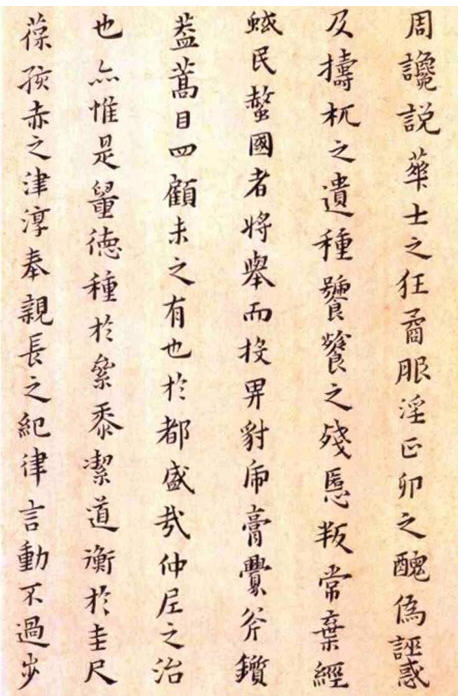 周讒説華士之狂矞服淫正卯之醜偽誣惑
及擣杌之遺種饕餮之殘慝叛常棄經
蜮民螫國者將舉而投畀豺虎膏釁斧鑕
葢蒿目四顧未之有也於都盛哉仲尼之治
也亦惟是量德種於絫黍潔道衡於圭尺
葆孩赤之津淳奉親長之紀律言動不過步